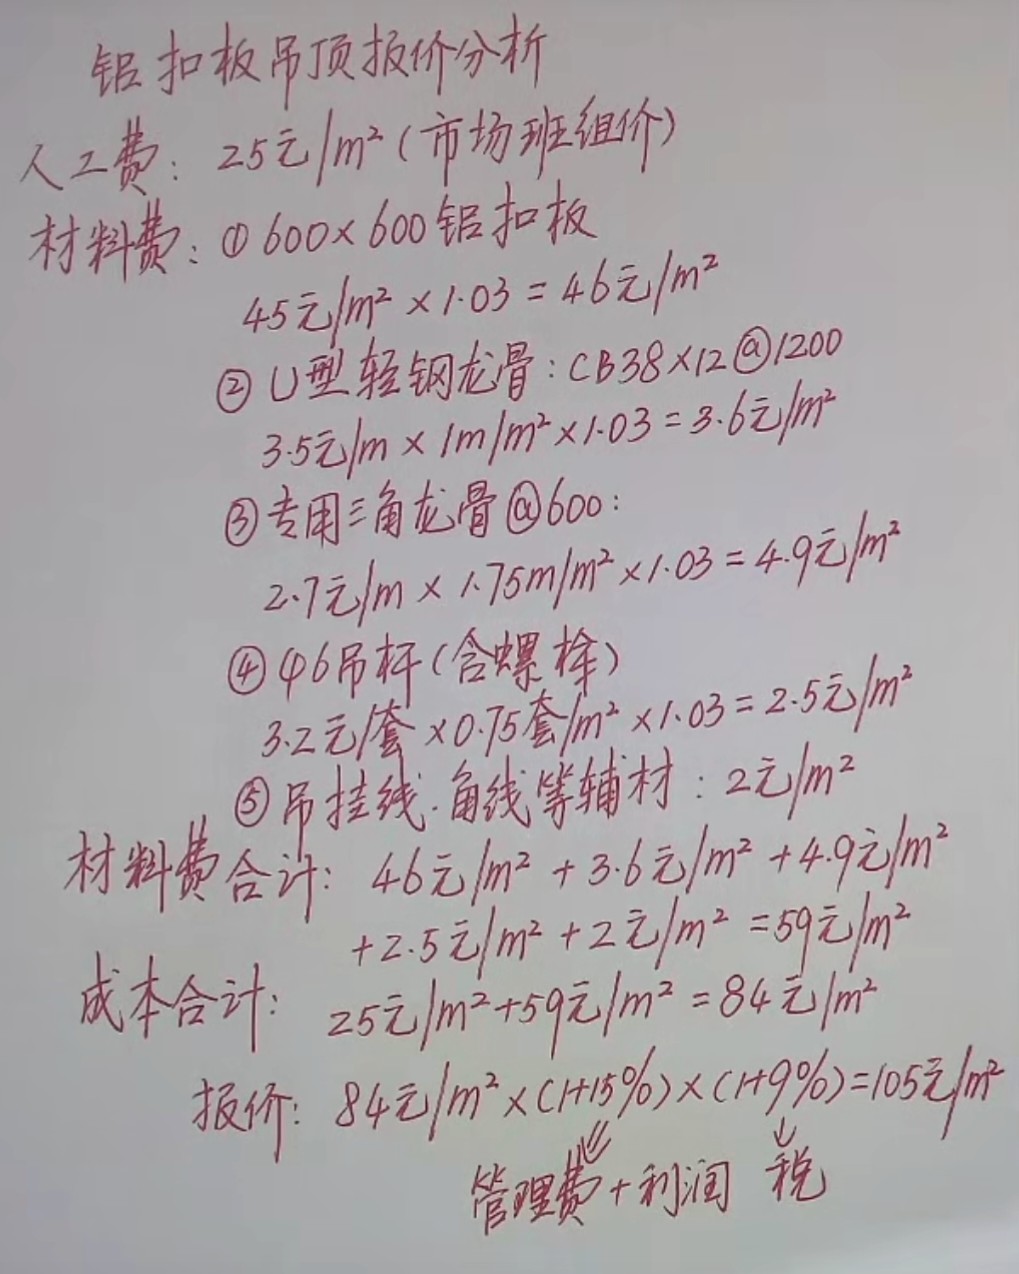 铝扣板吊顶报价分析
人工费：25元/m²（市场班组价）
材料费：①600×600铝扣板
45元/m²×1.03=46元/m²
②U型轻钢龙骨：CB38×12@1200
3.5元/m×1m/m²×1.03=3.6元/m²
③专用三角龙骨@600：
2.7元/m×1.75m/m²×1.03=4.9元/m²
④φ6吊杆（含螺栓）
3.2元/套×0.75套/m²×1.03=2.5元/m²
⑤吊挂线.角线等辅材：2元/m²
材料费合计：46元/m²+3.6元/m²+4.9元/m²
+2.5元/m²+2元/m²=59元/m²
成本合计：25元/m²+59元/m²=84元/m²
报价：84元/m²×(1+15%)×(1+9%)=105元/m²
管理费+利润 税